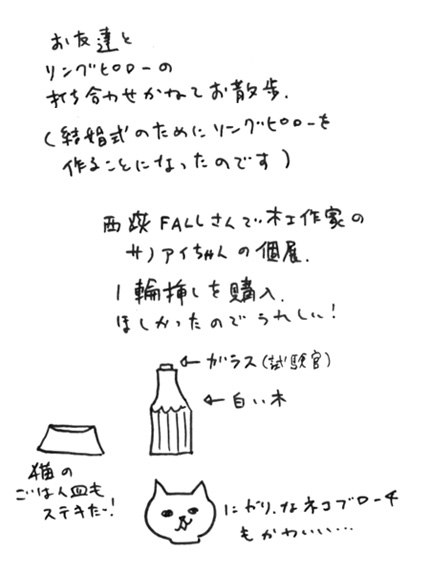 お友達と
リングピローの
打ち合わせかねてお散歩.
(結婚式のためにリングピローを
作ることになったのです)
西荻FALLさんで木工作家の
サノアイちゃんの個展.
1輪挿しを購入.
ほしかったのでうれしい!
←ガラス(試験官)
←白い木
猫の
ごはん皿も
ステキだー!
にがり.なネコブローチ
もかわいい…